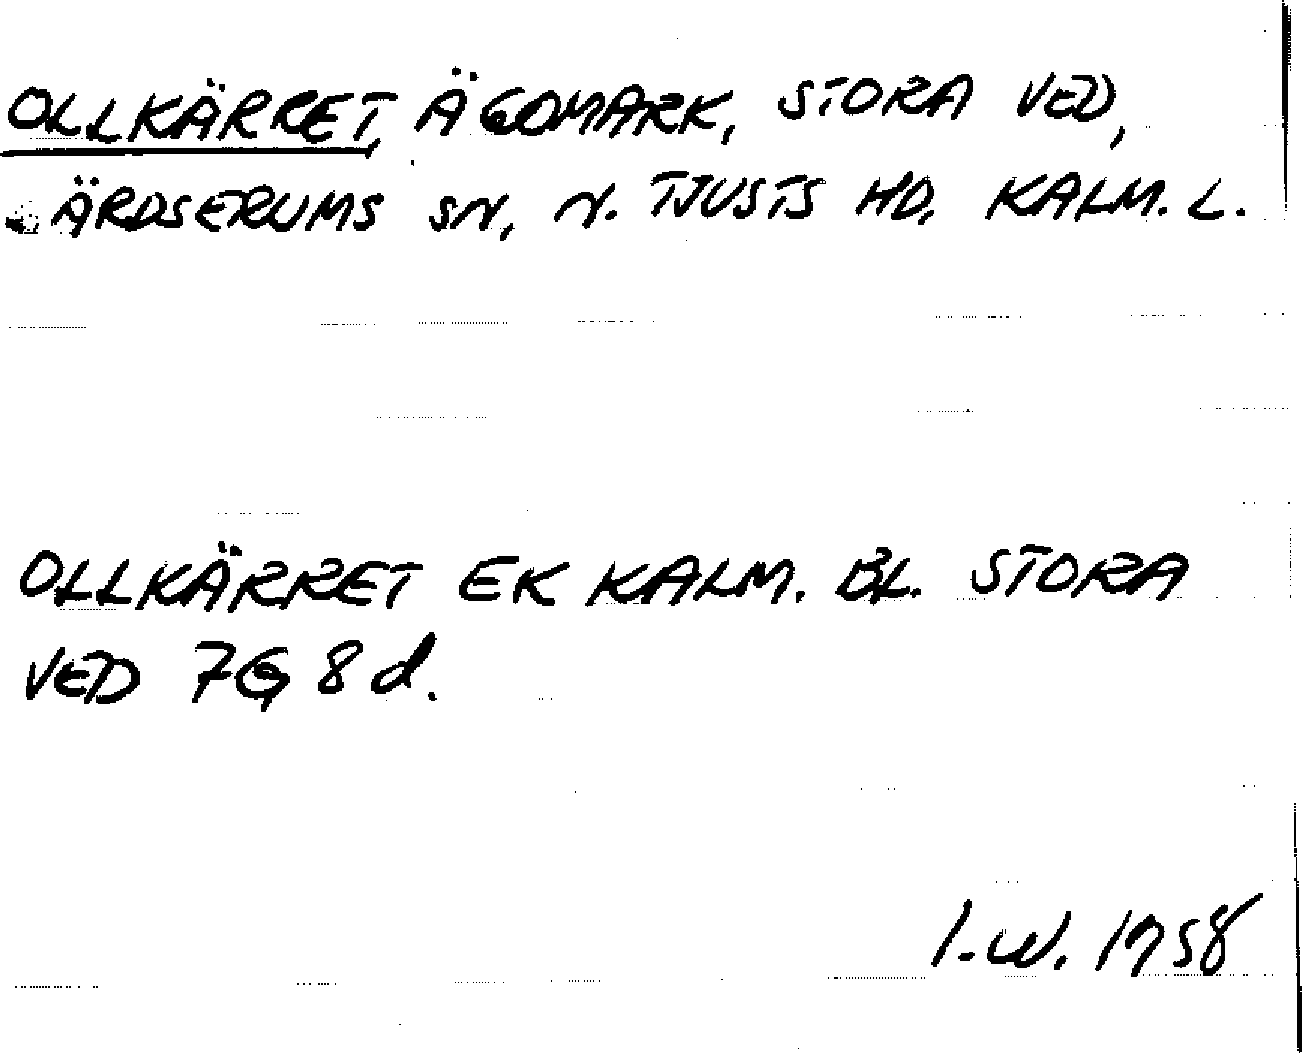 OLLKÄRRET, ÄGOMARK, STORA VED,
ÄRDSERUMS SN, N. TJUSTS HD. KALM. L.
OLLKÄRRET EK KALM. BL. STORA
VED 7G 8d.
I.W. 1958